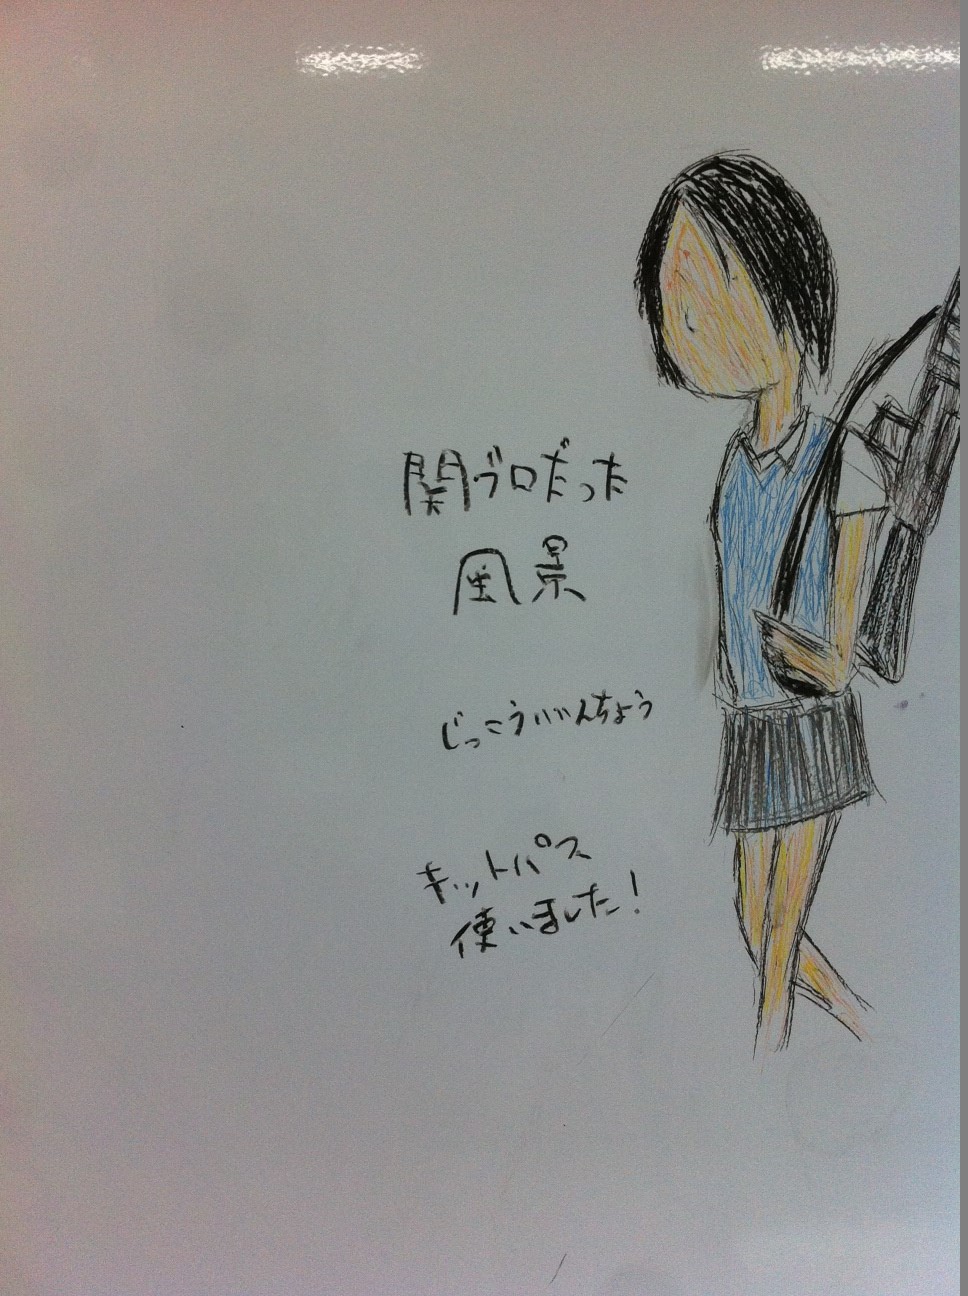 関ブロだった
風景
じっこういいんちょう
キットパス
使いました!